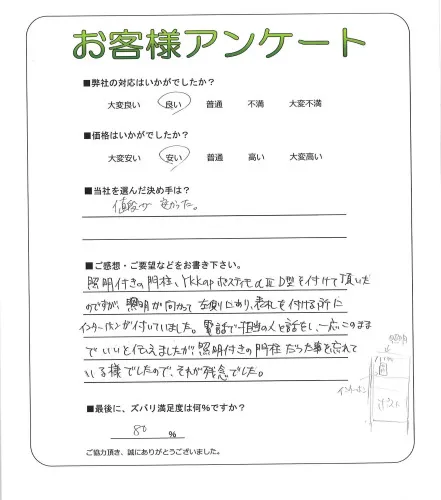 お客様アンケート
■弊社の対応はいかがでしたか？
大変良い 良い 普通 不満 大変不満
■価格はいかがでしたか？
大変安い 安い 普通 高い 大変高い
■当社を選んだ決め手は？
値段が安かった。
■ご感想・ご要望などをお書き下さい。
照明付きの門柱、YKKap ポスティモαⅡ D型を付けて頂いた
のですが、照明が向かって左側にあり、表札を付ける所に
インターホンが付いていました。電話で担当の人と話をし、一応このまま
でいいと伝えましたが、照明付きの門柱だった事を忘れて
いる様でしたので、それが残念でした。
照明
インターホン
ポスト
■最後に、ズバリ満足度は何%ですか？
80 %
ご協力頂き、誠にありがとうございました。